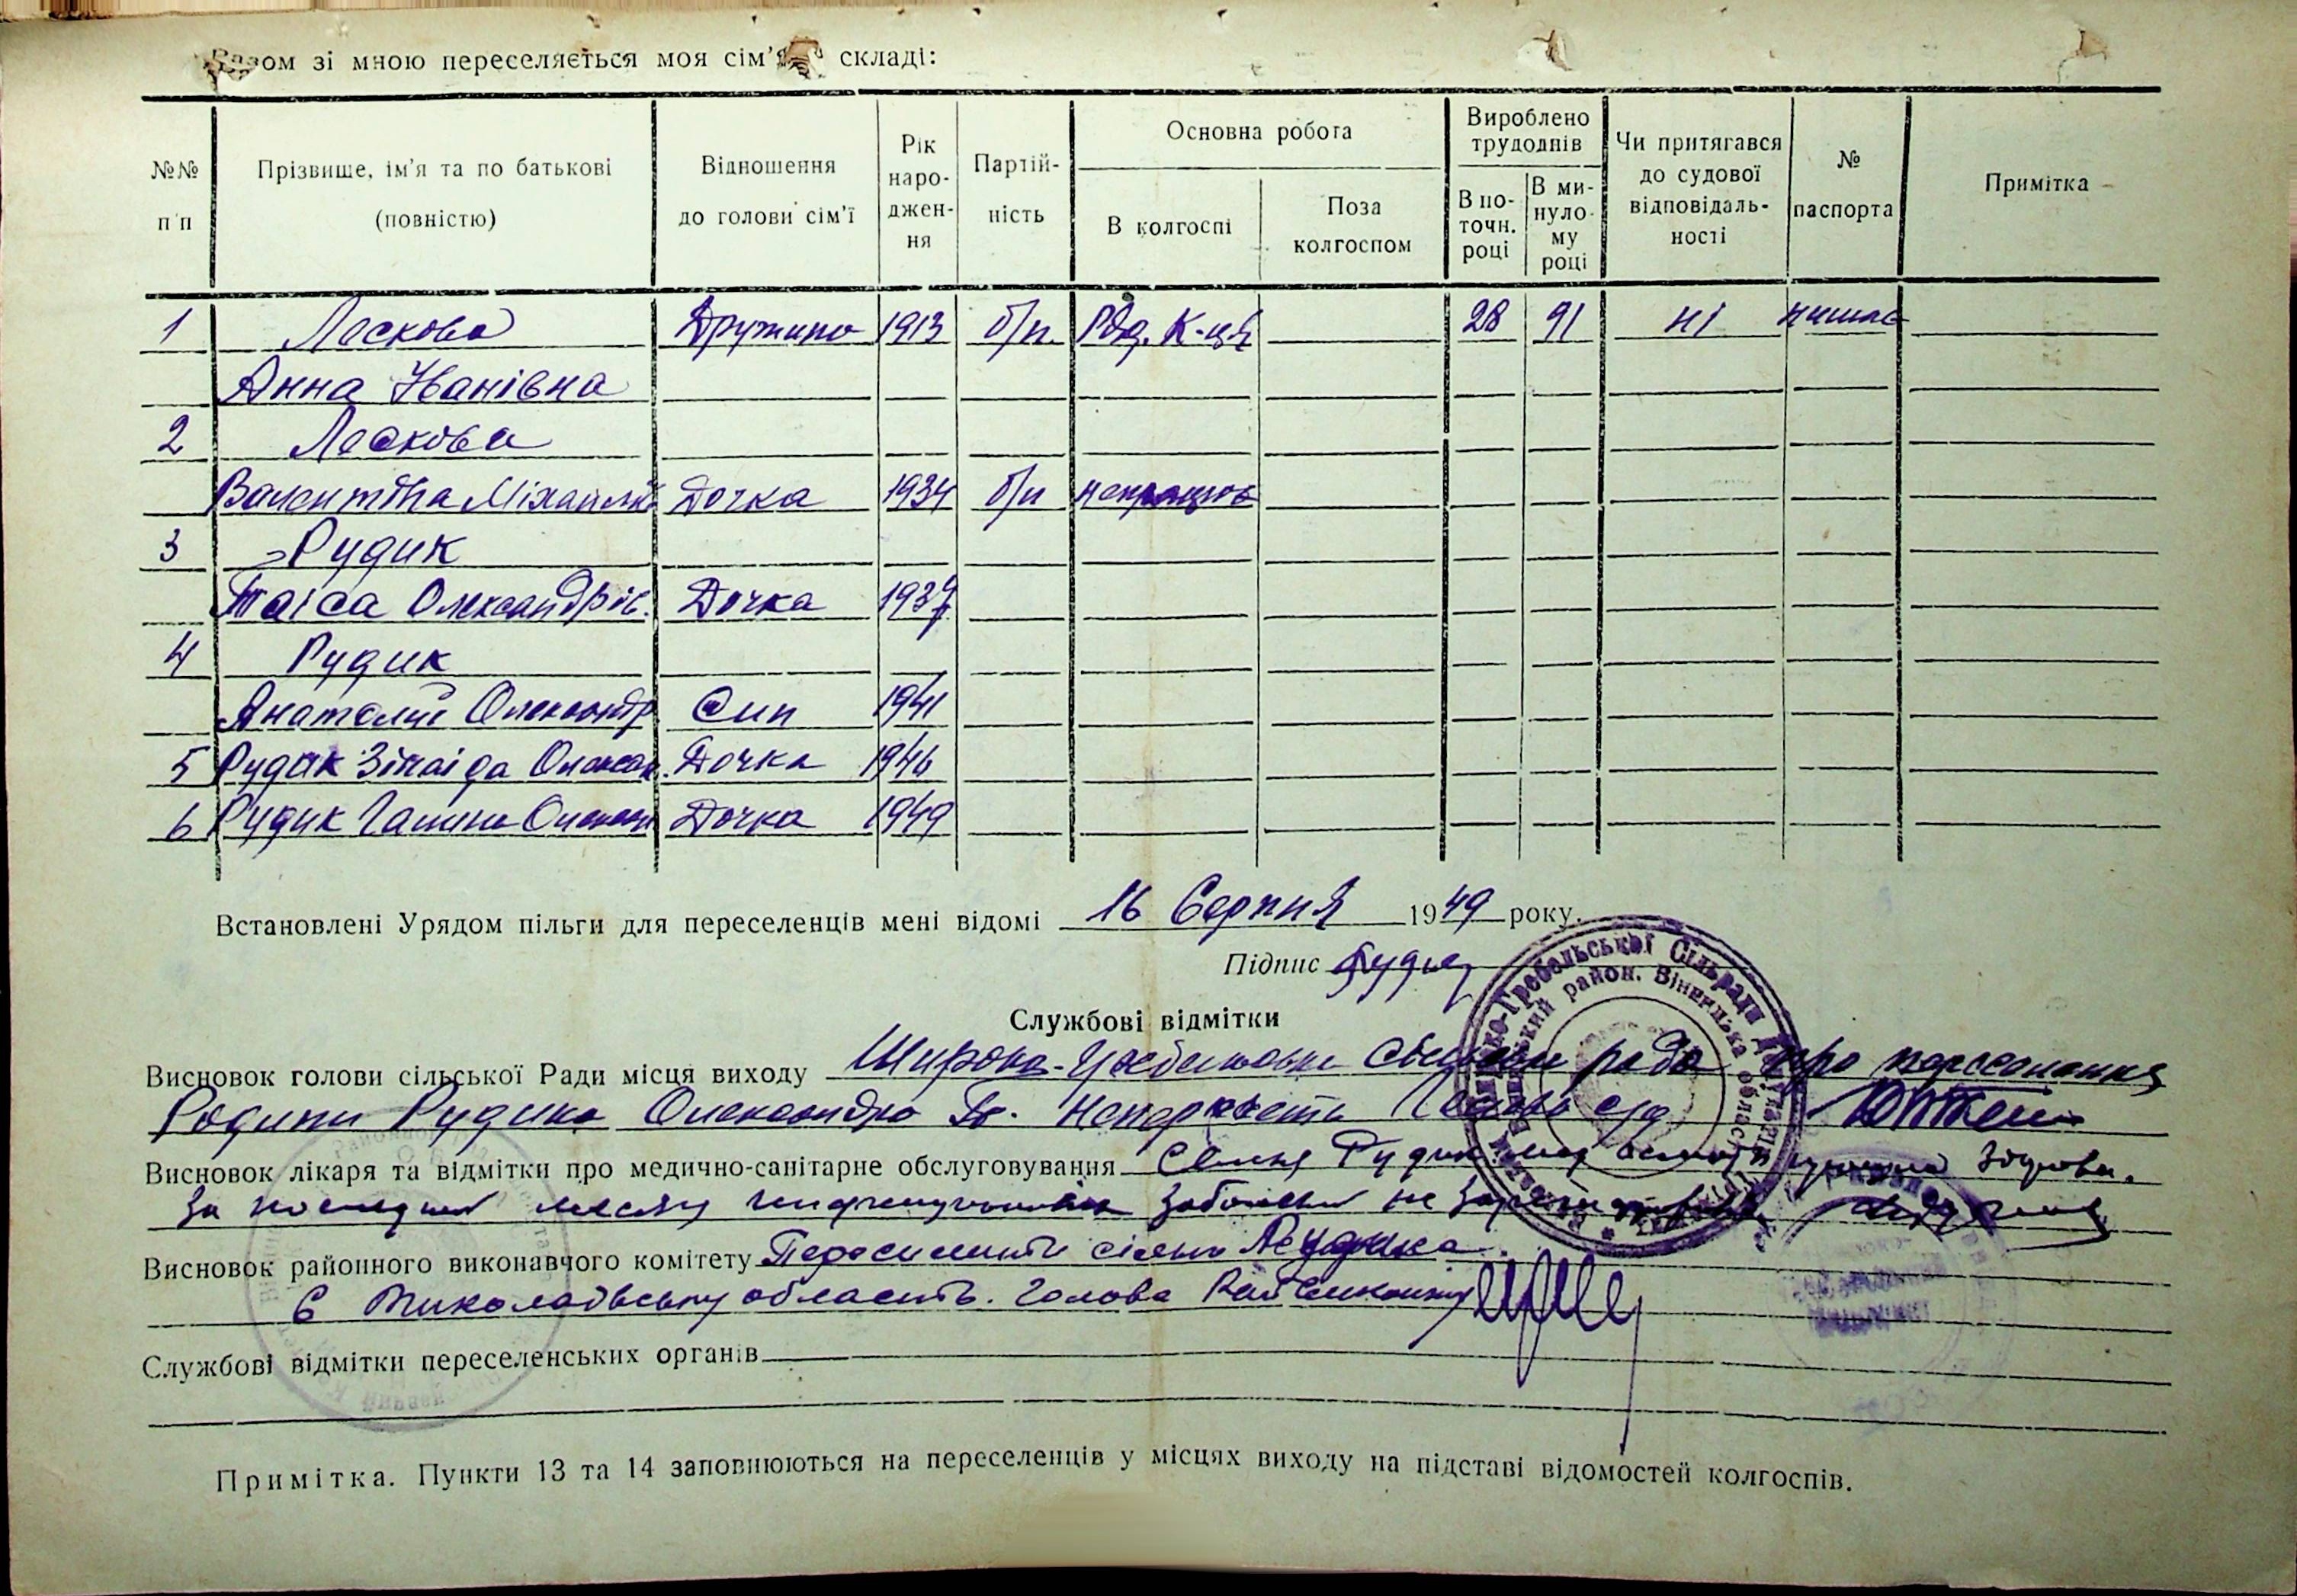 Разом зі мною переселяється моя сім'я складі:
№№ п п
Прізвище, ім'я та по батькові (повністю)
Відношення до голови сім'ї
Рік народження
Партійність
Основна робота
В колгоспі
Поза колгоспом
Вироблено трудоднів
В поточн. році
В минулому році
Чи притягався до судової відповідальності
№ паспорта
Примітка
1 Лескова Дружина 1913 б/п. Ряд. К-ця 28 91 ні немає
Анна Іванівна
2 Лескова
Валентина Міхайлів Дочка 1934 б/п непрацює
3 Рудик
Таіса Олександрів. Дочка 1937
4 Рудик
Анатолий Олександр Син 1941
5 Рудик Зінаіда Олексан. Дочка 1946
6 Рудик Галина Олександ Дочка 1949
Встановлені Урядом пільги для переселенців мені відомі 16 Серпня 1949 року.
Підпис
Службові відмітки
Висновок голови сільської Ради місця виходу Широко-Гребельська рада про переселення
Родини Рудика Олександра Голова с/р
Висновок лікаря та відмітки про медично-санітарне обслуговування Семья Рудик здорова.
За последний месяц заболеваний не
Висновок районного виконавчого комітету Переселити сімью Рудика
в Миколаівську область. Голова Райвиконкому
Службові відмітки переселенських органів
Примітка. Пункти 13 та 14 заповнюються на переселенців у місцях виходу на підставі відомостей колгоспів.